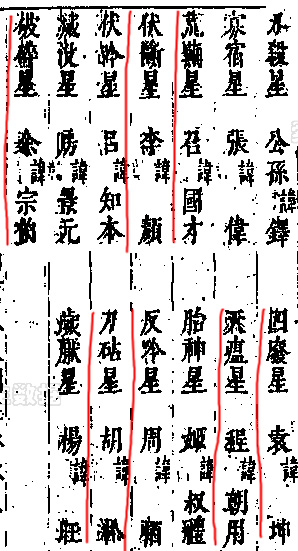 殺星 公孫諱鐸
四廢星 袁諱坤
寡宿星 張諱偉
天瘟星 程諱朝用
荒蕪星 召諱國才
胎神星 姬諱叔禮
伏斷星 李諱顯
反吟星 周諱
伏吟星 呂諱知本
刀砧星 胡諱
滅没星 房諱景元
歲厭星 楊諱
破碎星 余諱宗